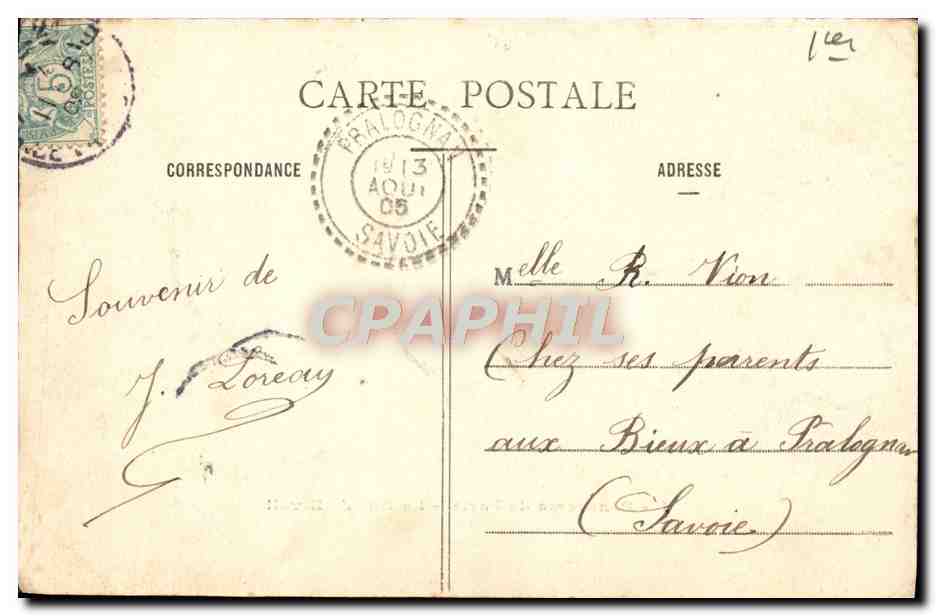 1er
5
POSTES
CARTE POSTALE
PRALOGNAN
13
AOUT
05
SAVOIE
CORRESPONDANCE
ADRESSE
Souvenir de
J. Loreau
Melle R. Vion
Chez ses parents
aux Bieux à Pralognan
(Savoie)
CPAPHIL